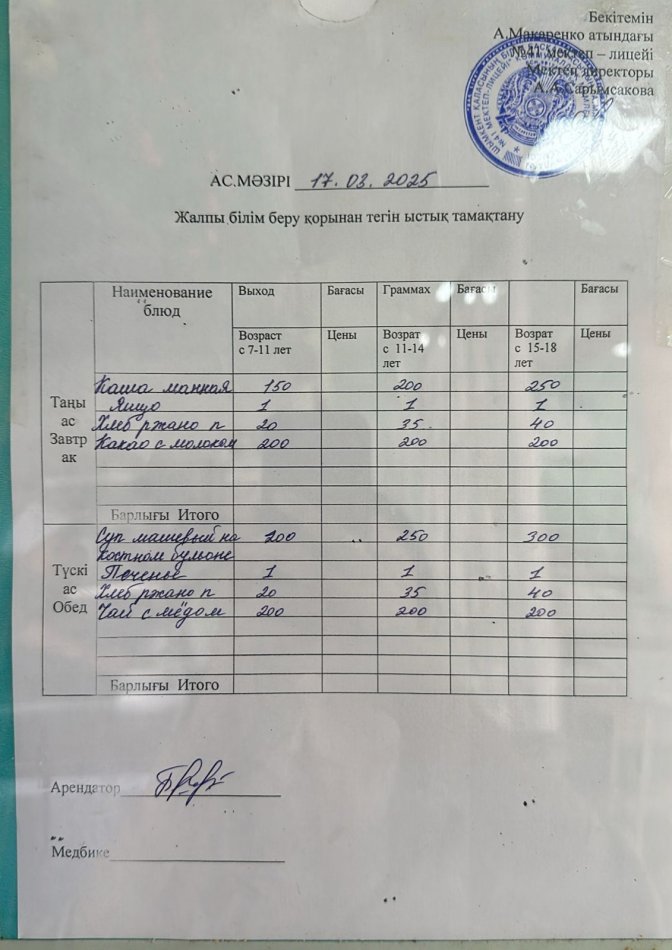 Бекітемін
А.Макаренко атындағы
№41 мектеп – лицейі
Мектеп директоры
А.А.Сарымсакова
АС.МӘЗІРІ 17.03.2025
Жалпы білім беру қорынан тегін ыстық тамақтану
Наименование блюд Выход Бағасы Граммах Бағасы Бағасы
Возраст с 7-11 лет Цены Возрат с 11-14 лет Цены Возрат с 15-18 лет Цены
Таңы ас Завтрак
Каша манная 150 200 250
Яйцо 1 1 1
Хлеб ржано п 20 35 40
Какао с молоком 200 200 200
Барлығы Итого
Түскі ас Обед
Суп машевый на костном бульоне 200 250 300
Печенье 1 1 1
Хлеб ржано п 20 35 40
Чай с мёдом 200 200 200
Барлығы Итого
Арендатор
Медбике